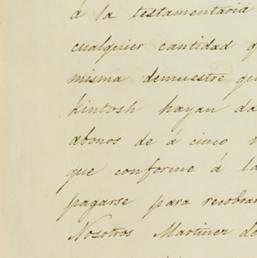 á la testamentaria
cualquier cantidad q
misma demuestre que
kintosh hayan da
abonos de a cinco
que conforme á la
pagarse para recobrar
Nosotros Martinez de